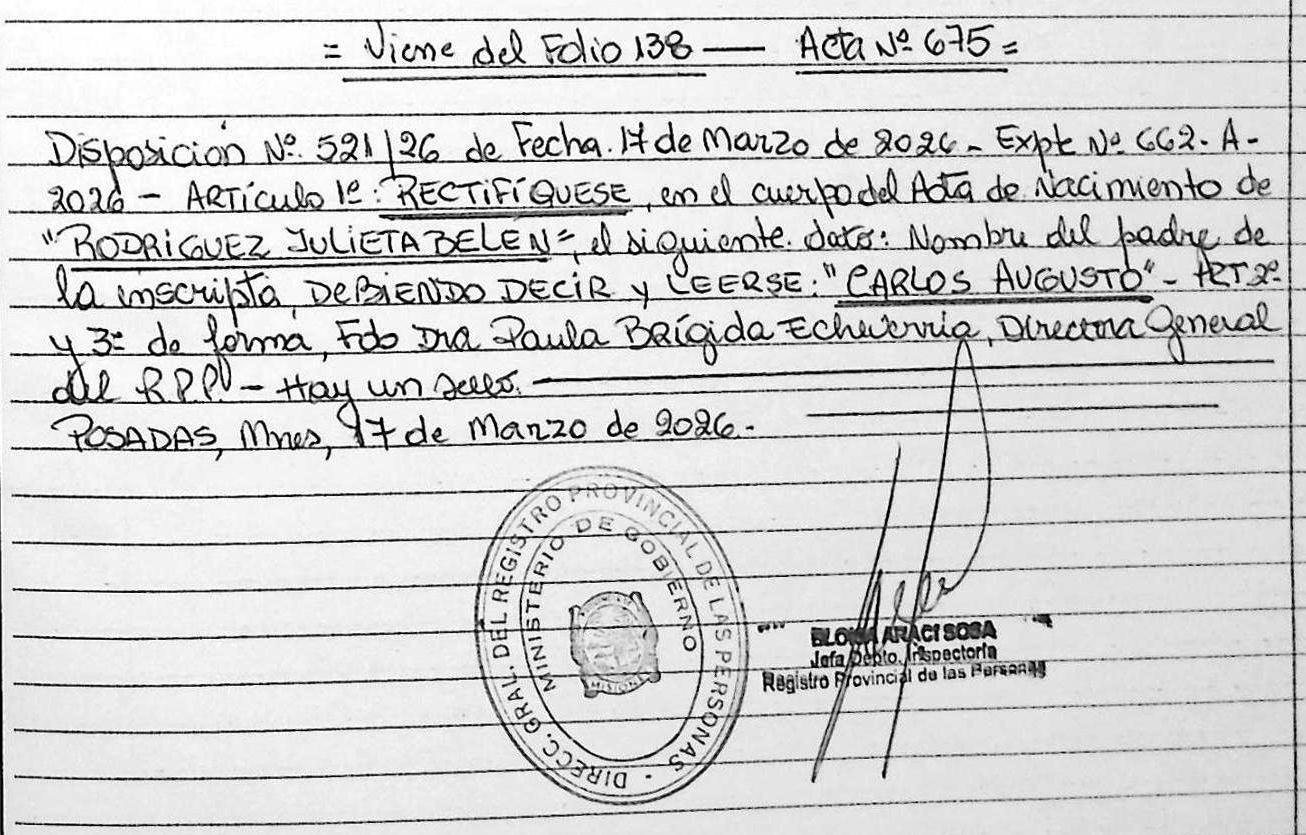 = Viene del Folio 138 — Acta Nº 675 =
Disposición Nº. 521/26 de Fecha. 17 de Marzo de 2026 - Expte Nº 662-A-
2026 - ARTículo 1º: RECTIFÍQUESE, en el cuerpo del Acta de Nacimiento de
"RODRIGUEZ JULIETA BELEN", el siguiente dato: Nombre del padre de
la inscripta, DEBIENDO DECIR y LEERSE: "CARLOS AUGUSTO" - ART 2º
y 3º de forma, Fdo Dra Paula Brígida Echeverría, Directora General
del R.P.P. - Hay un sello.
POSADAS, Mnes, 17 de Marzo de 2026.-
DIRECC. GRAL. DEL REGISTRO PROVINCIAL DE LAS PERSONAS -
MINISTERIO DE GOBIERNO
MISIONES
ELOISA ARACI SOSA
Jefa Depto. Inspectoría
Registro Provincial de las Personas